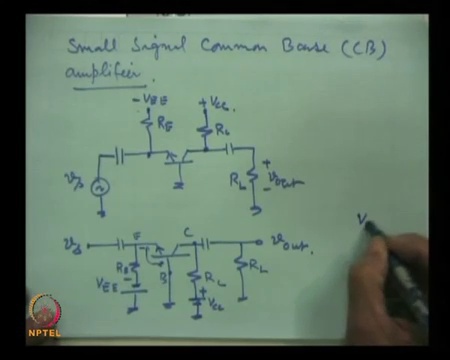 Small Signal Common Base (CB)
amplifier.
- VEE
+ VCC
RE
RL
+
RL vout
-
vs
vs
E
C
vout
RE
B
VEE
RL
RL
+
VCC
V
NPTEL